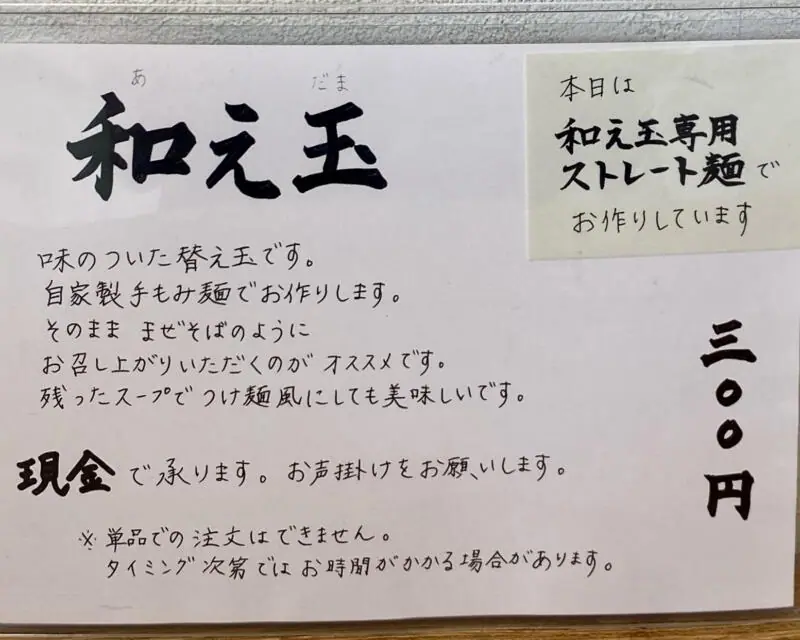 あ だま
和え玉
本日は
和え玉専用
ストレート麺で
お作りしています
味のついた替え玉です。
自家製手もみ麺でお作りします。
そのまま まぜそばのように
お召し上がりいただくのが オススメです。
残ったスープでつけ麺風にしても美味しいです。
三〇〇円
現金で承ります。お声掛けをお願いします。
※単品での注文はできません。
タイミング次第ではお時間がかかる場合があります。